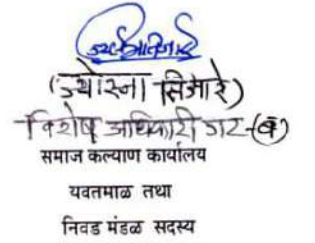 (ज्योत्स्ना सिजारे)
विशेष अधिकारी गट-(ब)
समाज कल्याण कार्यालय
यवतमाळ तथा
निवड मंडळ सदस्य